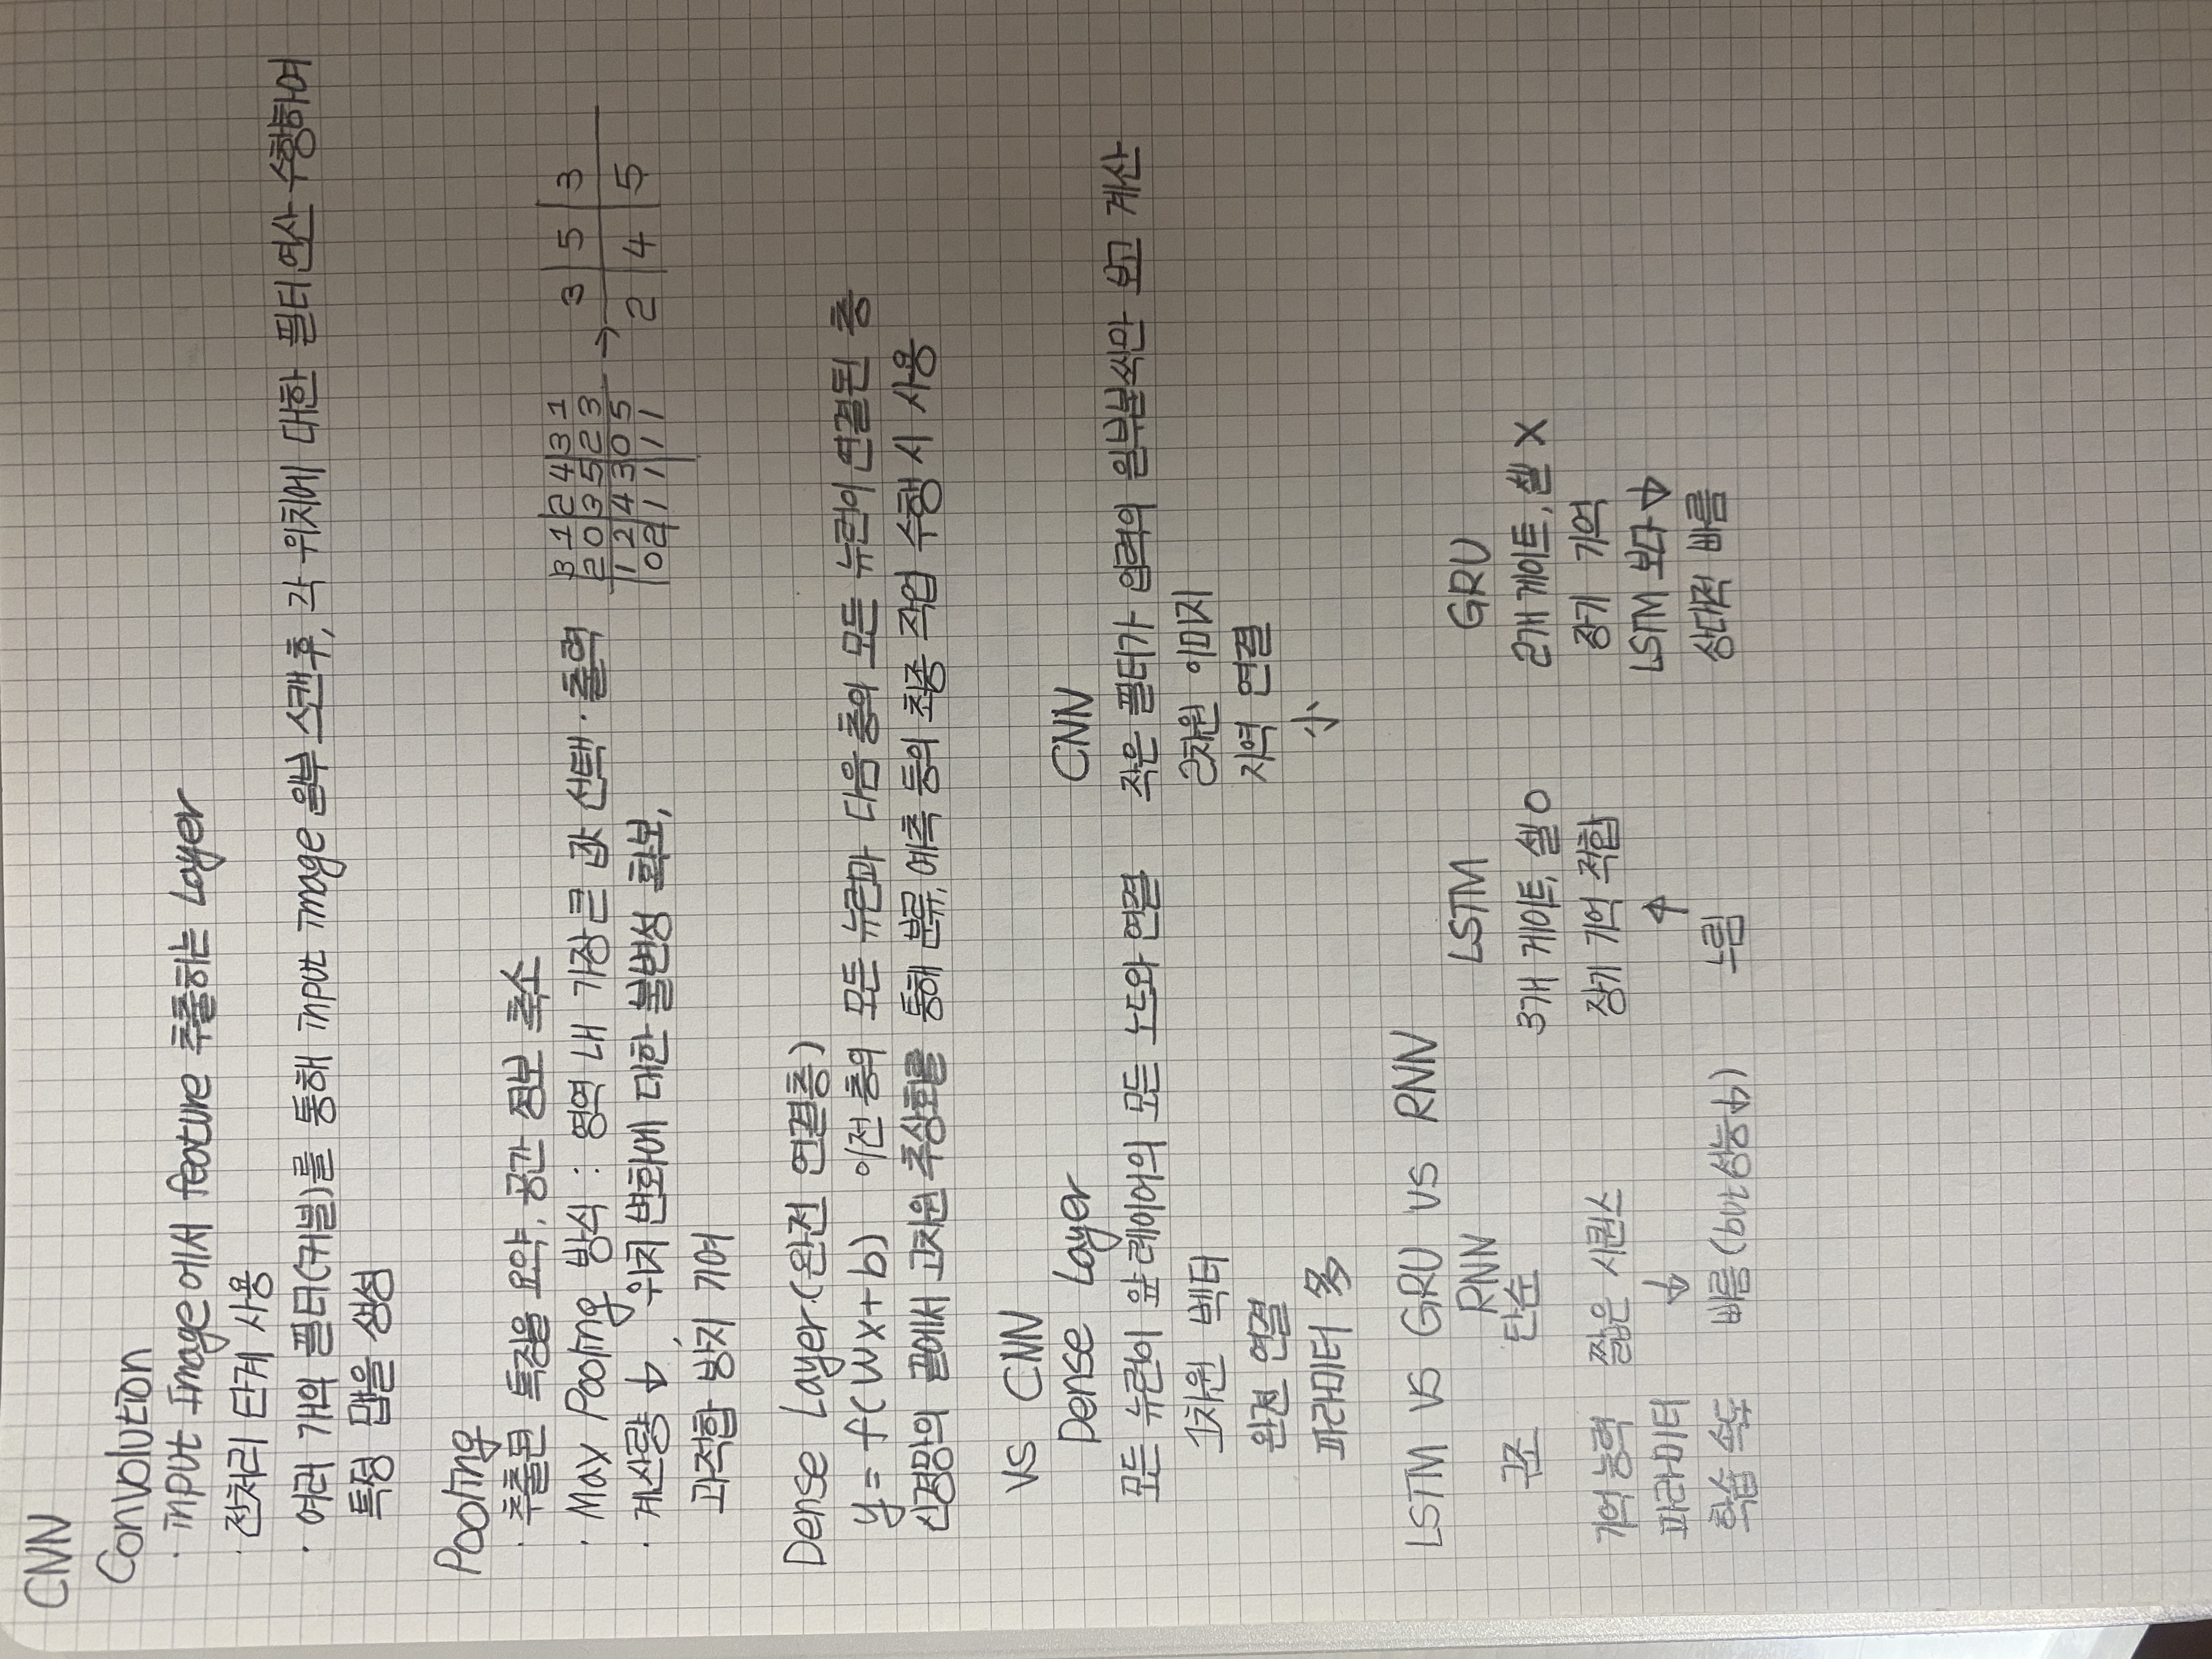 CNN
Convolution
· input Image에서 feature 추출하는 Layer
· 전처리 단계 사용
· 여러 개의 필터(커널)를 통해 input image 일부 스캔 후, 각 위치에 대한 필터 연산 수행하여
특징 맵을 생성
Pooling
· 추출된 특징을 요약, 공간 정보 축소
· Max Pooling 방식 : 영역 내 가장 큰 값 선택·출력
· 계산량 ↓, 위치 변화에 대한 불변성 확보,
과적합 방지 기여
3 1 2 4 3 1
2 0 3 5 2 3
1 2 4 3 0 5
0 2 1 1 1 1
→
3 5 3
2 4 5
Dense Layer (완전 연결층)
y = f(Wx+b) 이전 층의 모든 뉴런과 다음 층의 모든 뉴런이 연결된 층
신경망의 끝에서 고차원 추상화를 통해 분류, 예측 등의 최종 작업 수행 시 사용
VS CNN
Dense Layer CNN
모든 뉴런이 앞 레이어의 모든 노드와 연결 작은 필터가 입력의 일부분씩만 보고 계산
1차원 벡터 2차원 이미지
완전 연결 지역 연결
파라미터 多 小
LSTM VS GRU VS RNN
RNN LSTM GRU
구조 단순 3개 게이트, 셀 O 2개 게이트, 셀 X
기억 능력 짧은 시퀀스 장기 기억 적합 장기 기억
파라미터 ↓ ↑ LSTM 보다 ↓
학습 속도 빠름 (but 성능↓) 느림 상대적 빠름